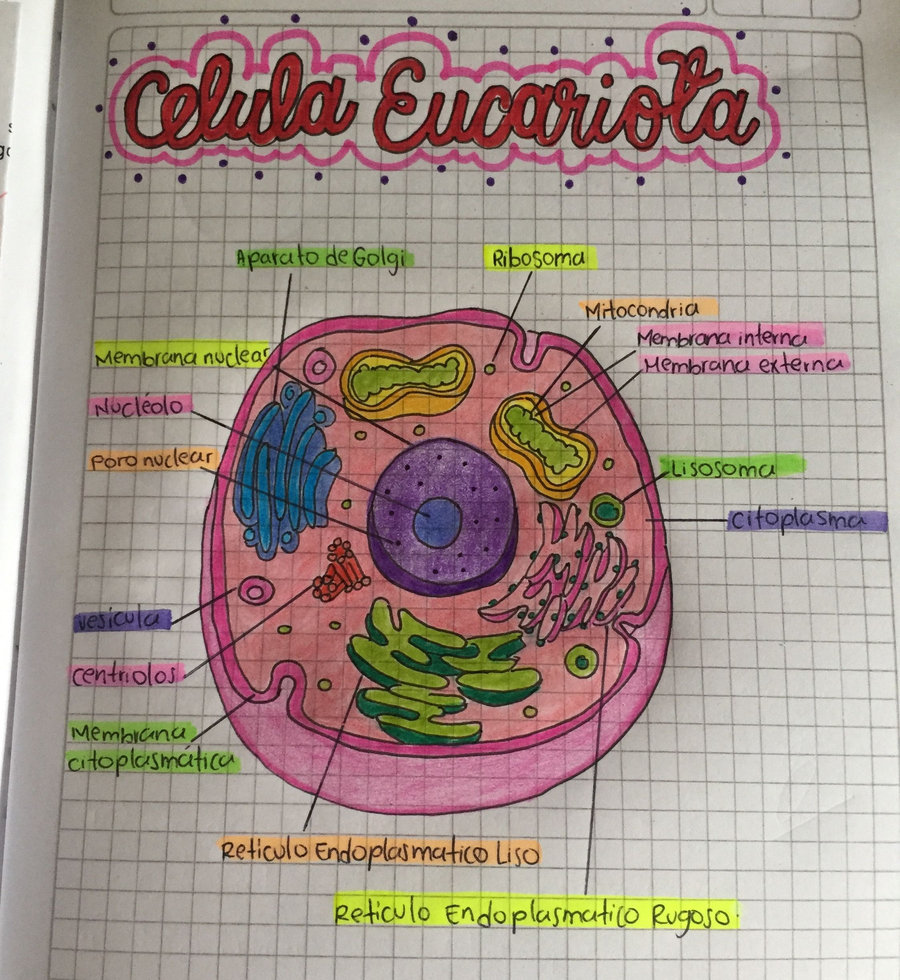 Celula Eucariota
Aparato de Golgi
Ribosoma
Mitocondria
Membrana interna
Membrana externa
Membrana nuclear
Nucléolo
Poro nuclear
Lisosoma
citoplasma
vesicula
centriolos
Membrana
citoplasmática
Reticulo Endoplasmatico Liso
Reticulo Endoplasmatico Rugoso.